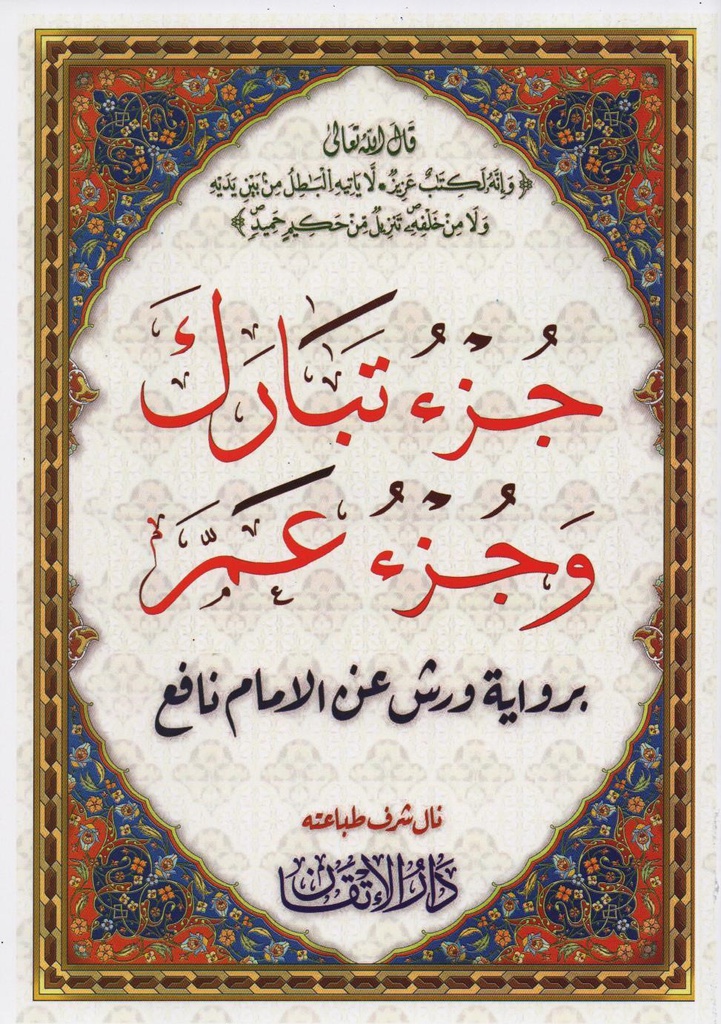 قَالَ اللّٰهُ تَعَالَىٰ
﴿ وَإِنَّهُۥ لَكِتَٰبٌ عَزِيزٌ ۝ لَّا يَاتِيهِ اِ۬لْبَٰطِلُ مِنۢ بَيْنِ يَدَيْهِ
وَلَا مِنْ خَلْفِهِۦۖ تَنزِيلٌ مِّنْ حَكِيمٍ حَمِيدٍۖ ﴾
جُزْءُ تَبَارَكَ
وَجُزْءُ عَمَّ
برواية ورش عن الامام نافع
نال شرف طباعته
دَارُ الإِتْقَان